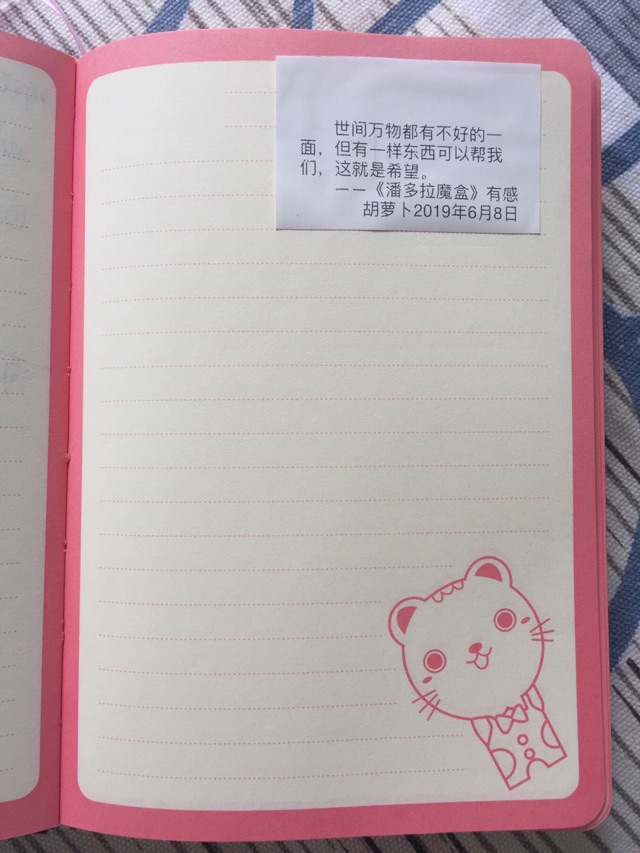 世间万物都有不好的一
面，但有一样东西可以帮我
们，这就是希望。
——《潘多拉魔盒》有感
胡萝卜2019年6月8日